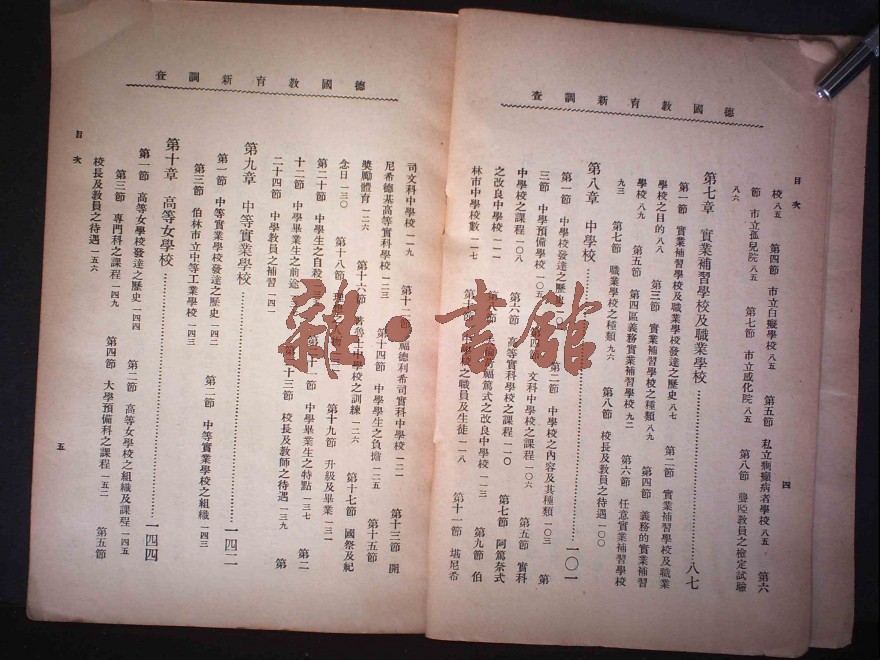 德國教育新調查
目次
四
校八五 第四節 市立白癡學校八五 第五節 私立癲癇病者學校八五 第六
節 市立孤兒院八五 第七節 市立感化院八五 第八節 聾啞教員之檢定試驗
八六
第七章 實業補習學校及職業學校……八七
第一節 實業補習學校及職業學校發達之歷史八七 第二節 實業補習學校及職業
學校之目的八八 第三節 實業補習學校之種類八九 第四節 義務的實業補習
學校八九 第五節 第四區義務實業補習學校九二 第六節 任意實業補習學校
九三 第七節 職業學校之種類九六 第八節 校長及教員之待遇一〇〇
第八章 中學校……一〇一
第一節 中學校發達之歷史 第二節 中學校之內容及其種類一〇三 第
三節 中學預備學校一〇五 第四節 文科中學校之課程一〇六 第五節 實科
中學校之課程一〇八 第六節 高等實科學校之課程一一〇 第七節 阿篤奈式
之改良中學校一一一 第八節 福篤式之改良中學校一一三 第九節 伯
林市中學校數一一七 第十節 中學校之職員及生徒一一八 第十一節 堪尼希
德國教育新調查
目次
五
司文科中學校一一九 第十二節 福德利希司實科中學校一二一 第十三節 開
尼希德基高等實科學校一二三 第十四節 中學學生之負擔一二五 第十五節
獎勵體育一二六 第十六節 普魯士中學校之訓練一二六 第十七節 國祭及紀
念日一三〇 第十八節 第十九節 升級及畢業一三一
第二十節 中學生之自殺 第二十一節 中學畢業生之特點一三七 第二
十二節 中學畢業生之前途 第二十三節 校長及教師之待遇一三九 第
二十四節 中學教員之補習一四一
第九章 中等實業學校……一四二
第一節 中等實業學校發達之歷史一四二 第二節 中等實業學校之組織一四三
第三節 伯林市立中等工業學校一四三
第十章 高等女學校……一四四
第一節 高等女學校發達之歷史一四四 第二節 高等女學校之組織及課程一四五
第三節 專門科之課程一四九 第四節 大學預備科之課程一五二 第五節
校長及教員之待遇一五六
雜·書館